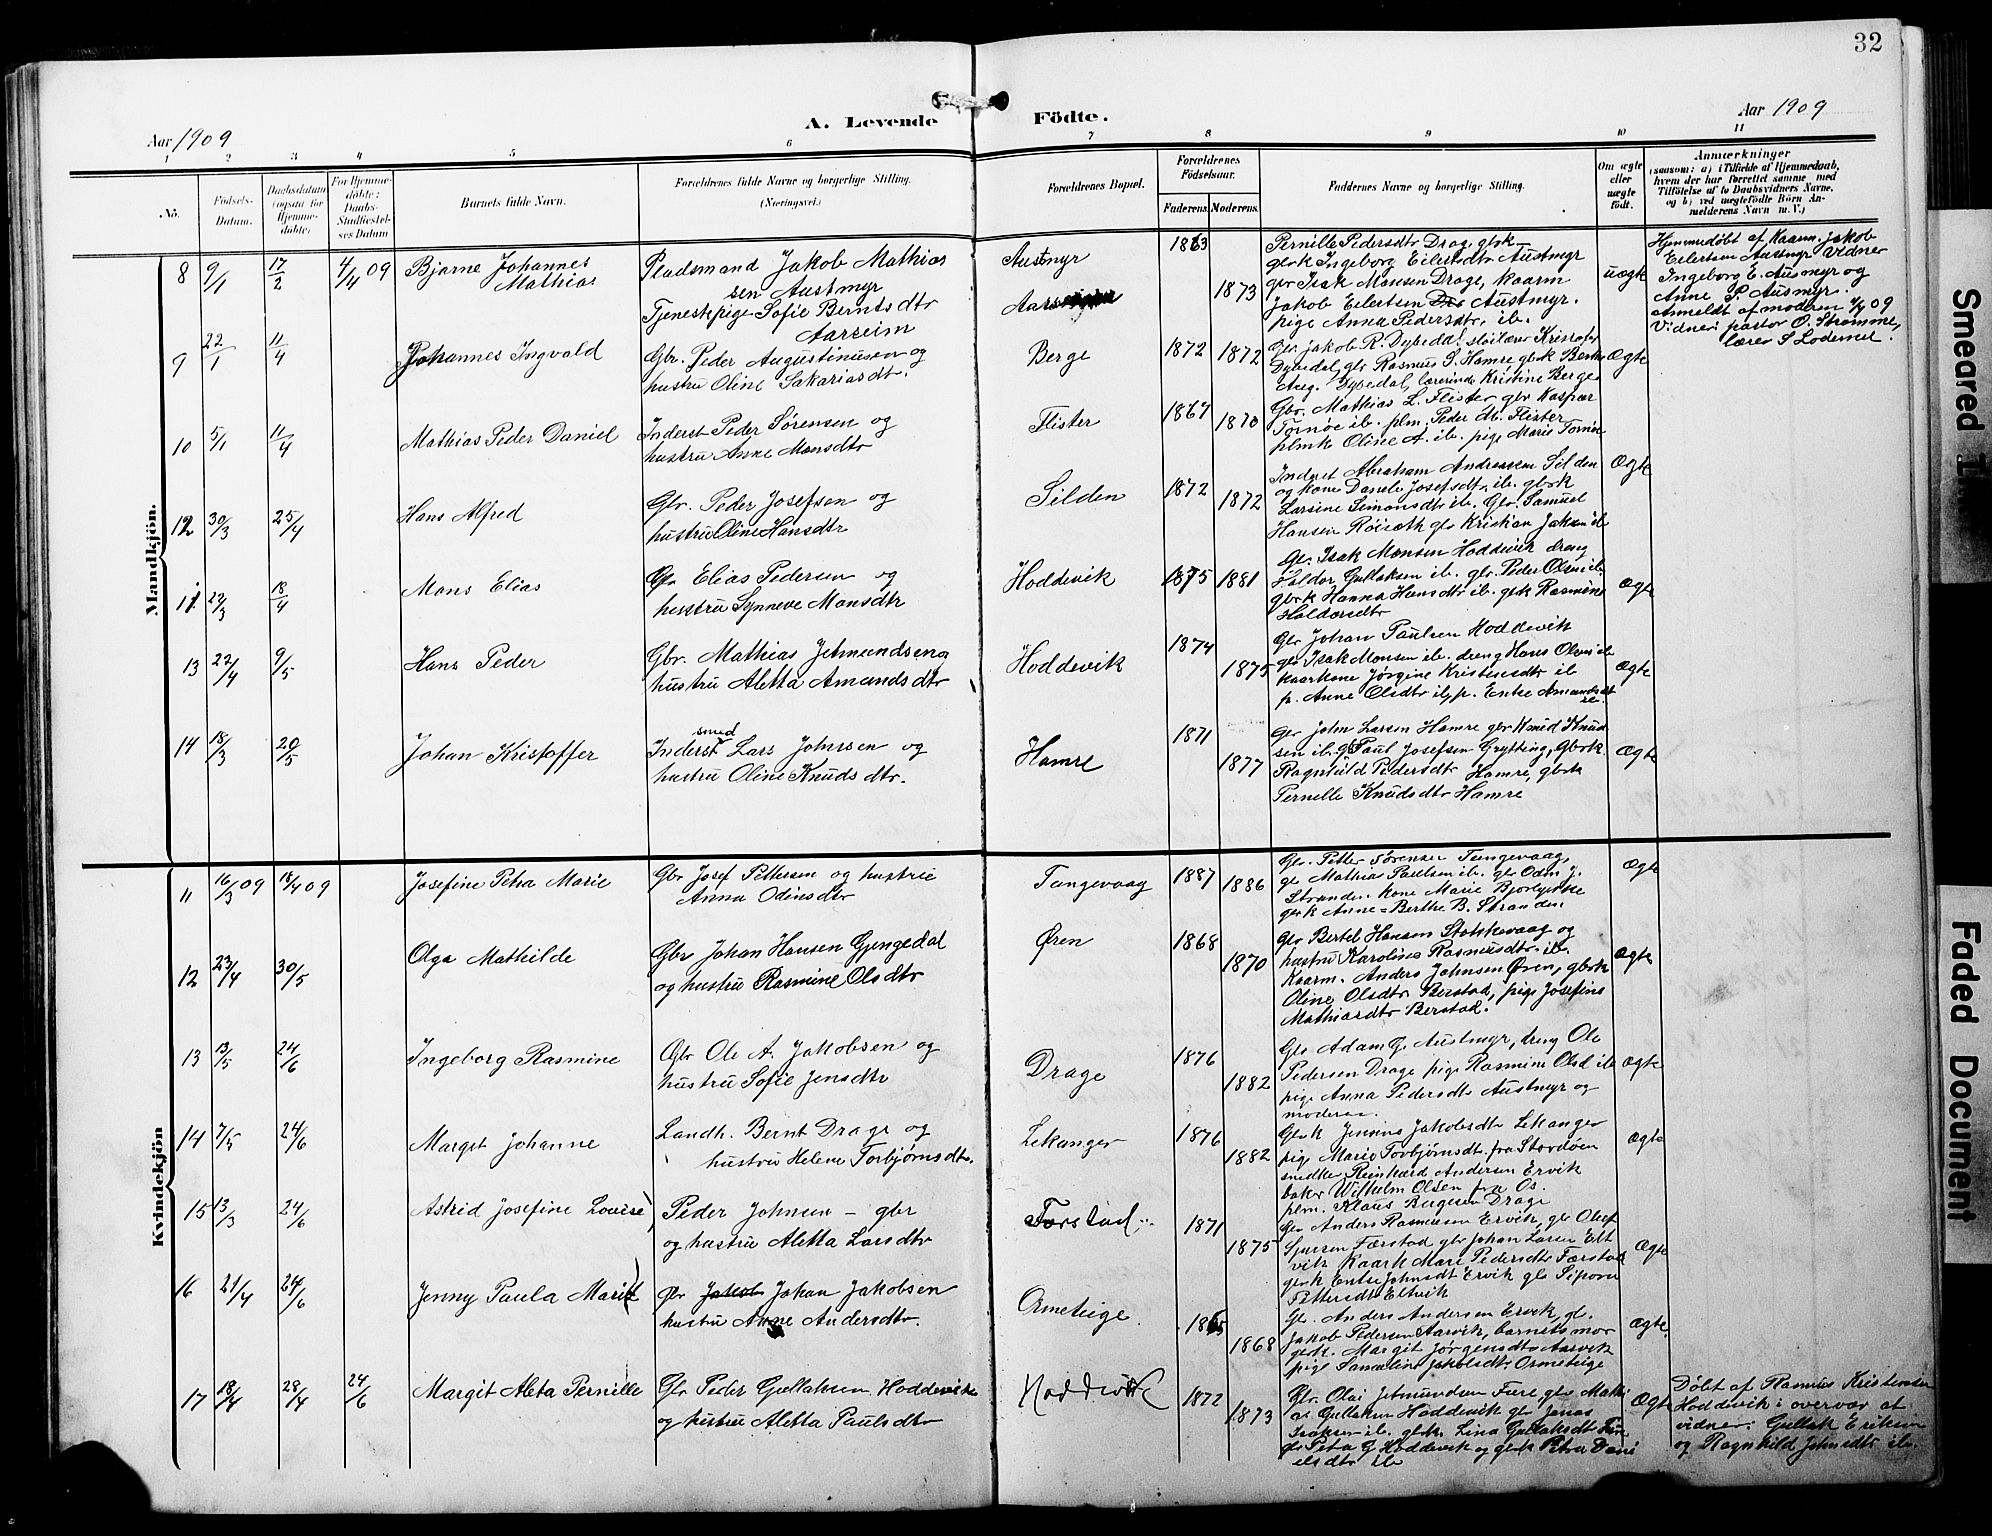 32
Aar 1909
A. Levende Födte.
Aar 1909
1 2 3 4 5 6 7 8 9 10 11
No.
Fødsels-
Datum.
Daabsdatum
(ogsaa for
Hjemme-
döbte)
For Hjemme-
döbte:
Daabs-
Stadfæstel-
ses Datum
Barnets fulde Navn.
Forældrenes fulde Navne og borgerlige Stilling.
(Næringsvei.)
Forældrenes Bopæl.
Forældrenes
Födselsaar.
Faderens Moderens.
Faddernes Navne og borgerlige Stilling.
Om ægte
eller
uægte
födt.
Anmærkninger
(saasom: a) i Tilfælde af Hjemmedaab,
hvem der har forrettet samme med
Tilföielse af to Daabsvidners Navne,
og b) ved uægtefödte Börn An-
melderens Navn m. V.)
Mandkjön.
8 9/1 17/2 4/4 09 Bjarne Johannes
Mathias
Pladsmand Jakob Mathias
sen Austmyr
Tjenestepige Sofie Berntsdtr
Aarseim
Austmyr
1873
Pernille Pedersdtr Drage gbrk
gbrk Ingeborg Eilertsdtr Austmyr
gbr Isak Monsen Drage, kaarm
Jakob Eilertsen Austmyr.
pige Anna Pedersdtr, ib.
uægte
Hjemmedøbt af Kaarm. Jakob
Eilertsen Austmyr Vidner
Ingeborg E. Ausmyr og
Anne P. Ausmyr.
Anmeldt af moderen
Vidner: pastor O. Strømme,
lærer S Lodemel.
9 22/1 11/4 Johannes Ingvald
Gbr. Peder Augustinusen og
hustru Oline Sakariasdtr.
Berge
1872 1872
Gbr Jakob R. Dybedal
Dybedal, gbr Rasmus S. Hamre gbrk Berthe
Aug. Dybedal, lærerinde Kristine Berge
Ægte
10 5/1 11/4 Mathias Peder Daniel
Inderst Peder Sørensen og
hustru Anne Monsdtr
Flister
1867 1870
Gbr. Mathias L. Flister gbr Kaspar
Tornøe ib. plm. Peder M. Flister
plmk Oline A. ib. pige Marie Tornøe
Ægte
12 30/3 25/4 Hans Alfred
Gbr. Peder Josefsen og
hustru Oline Hansdtr
Silden
1872 1872
Inderst Abraham Andreassen Silden
og kone Danele Josefsdtr, ib. gbrk
Larsine Simonsdtr ib. Gbr. Samuel
Hansen Røisæth gbr Kristian Jakobs ib
11 22/3 18/4 Mons Elias
Gbr Elias Pedersen og
hustru Synneve Monsdtr
Hoddevik
1875 1881
Gbr. Isak Monsen Hoddevik dreng
Haldor Gullaksen ib. gbr. Peder Olsen ib.
gbrk Hanna Hansdtr ib. gbrk Rasmine
Haldorsdtr
Ægte
13 22/4 9/5 Hans Peder
Gbr. Mathias Jetmundsen og
hustru Aletta Amundsdtr
Hoddevik
1874 1875
Gbr Johan Paulsen Hoddevik
gbr Isak Monsen ib. dreng Hans Olsen ib
kaarkone Jørgine Kristensdtr ib
p. Anne Olsdtr ib, p. Enke Amundsdt
ib.
Ægte
14 18/3 20/5 Johan Kristoffer
smed
Inderst Lars Johnsen og
hustru Oline Knudsdtr.
Hamre
1871 1877
Gbr John Larsen Hamre gbr Knud Knud
sen ib. gb Paul Josefsen Grytting, gbrk
Ragnhild Pedersdtr Hamre, gbrk
Pernelle Knudsdtr Hamre
Ægte
Kvindekjön
11 16/3 09 18/4 09 Josefine Petra Marie
Gbr Josef Pettersen og hustru
Anna Odinsdtr
Tungevaag
1887 1886
Gbr. Petter Sørensen Tungevaag,
gbr Mathias Paulsen ib. gbr Odin J.
Stranden. kone Marie
gbrk Anne-Berthe B. Stranden.
Ægte
12 23/4 30/5 Olga Mathilde
Gbr Johan Hansen Gjengedal
og hustru Rasmine Olsdtr
Øren
1868 1870
Gbr Bertel Hansen Stokkevaag og
hustru Karoline Rasmusdtr. ib.
Kaarm. Anders Johnsen Øren, gbrk
Oline Olsdtr Berstad, pige Josefine
Mathiasdtr Berstad.
Ægte
13 13/5 24/6 Ingeborg Rasmine
Gbr Ole A. Jakobsen og
hustru Sofie Jensdtr
Drage
1876 1882
Gbr Adam G. Austmyr, dreng Ole
Pedersen Drage pige Rasmine Olsd ib
pige Anna Pedersdtr Austmyr og
moderen.
Ægte
14 7/5 24/6 Margit Johanne
Landh. Bernt Drage og
hustru Helene Torbjørnsdtr.
Lekanger
1876 1882
Gbrk Jennine Jakobsdtr Lekanger
pige Marie Torbjørnsdt. fra Stordøen
snedker Reinhard Andersen Ervik
baker Wilhelm Olsen fra Os.
plm. Klaus Bugesen Drage
Ægte
15 13/3 24/6 Astrid Josefine Lovise
Peder Johnsen – gbr
og hustru Aletta Larsdtr
Forstad
1871 1875
Gbr Anders Rasmussen Ervik, gbr Oluf
Sjursen Færstad gbr Johan Larsen Elt
vik Kaark Mari Pedersdtr Færstad
gbrk Entse Johnsdt Ervik
Pettersdt Eltvik
Ægte
16 21/4 24/6 Jenny Paula Marie
Gbr Jakob Johan Jakobsen
hustru Anne Andersdtr.
Ormeteige.
1865 1868
Gbr. Anders Andersen Ervik, gb.
Jakob Pedersen Aarvik, barnets mor
gbrk. Margit Jørgensdtr Aarvik
pige Samueline Jakobsdtr. Ormeteige
Ægte.
17 18/4 28/4 24/6 Margit Aleta Pernille
Gbr Peder Gullaksen Hoddevik
og hustru Aletta Paulsdtr
Hoddevik
1872 1873
Gbr. Olai Jetmundsen Fure, gbr Mathi
as Gullaksen Hoddevik gbr Jonas
Isaksen ib. gbrk. Lina Gullaksdt
Peta G Hoddevik og gbrk Petra Dani
elsdtr ib
Ægte
Døbt af Rasmus Kristensen
Hoddevik i overvær af
vidner: Gullak Eriksen
og Ragnhild Johnsdtr ib.
Smeared
Faded Document